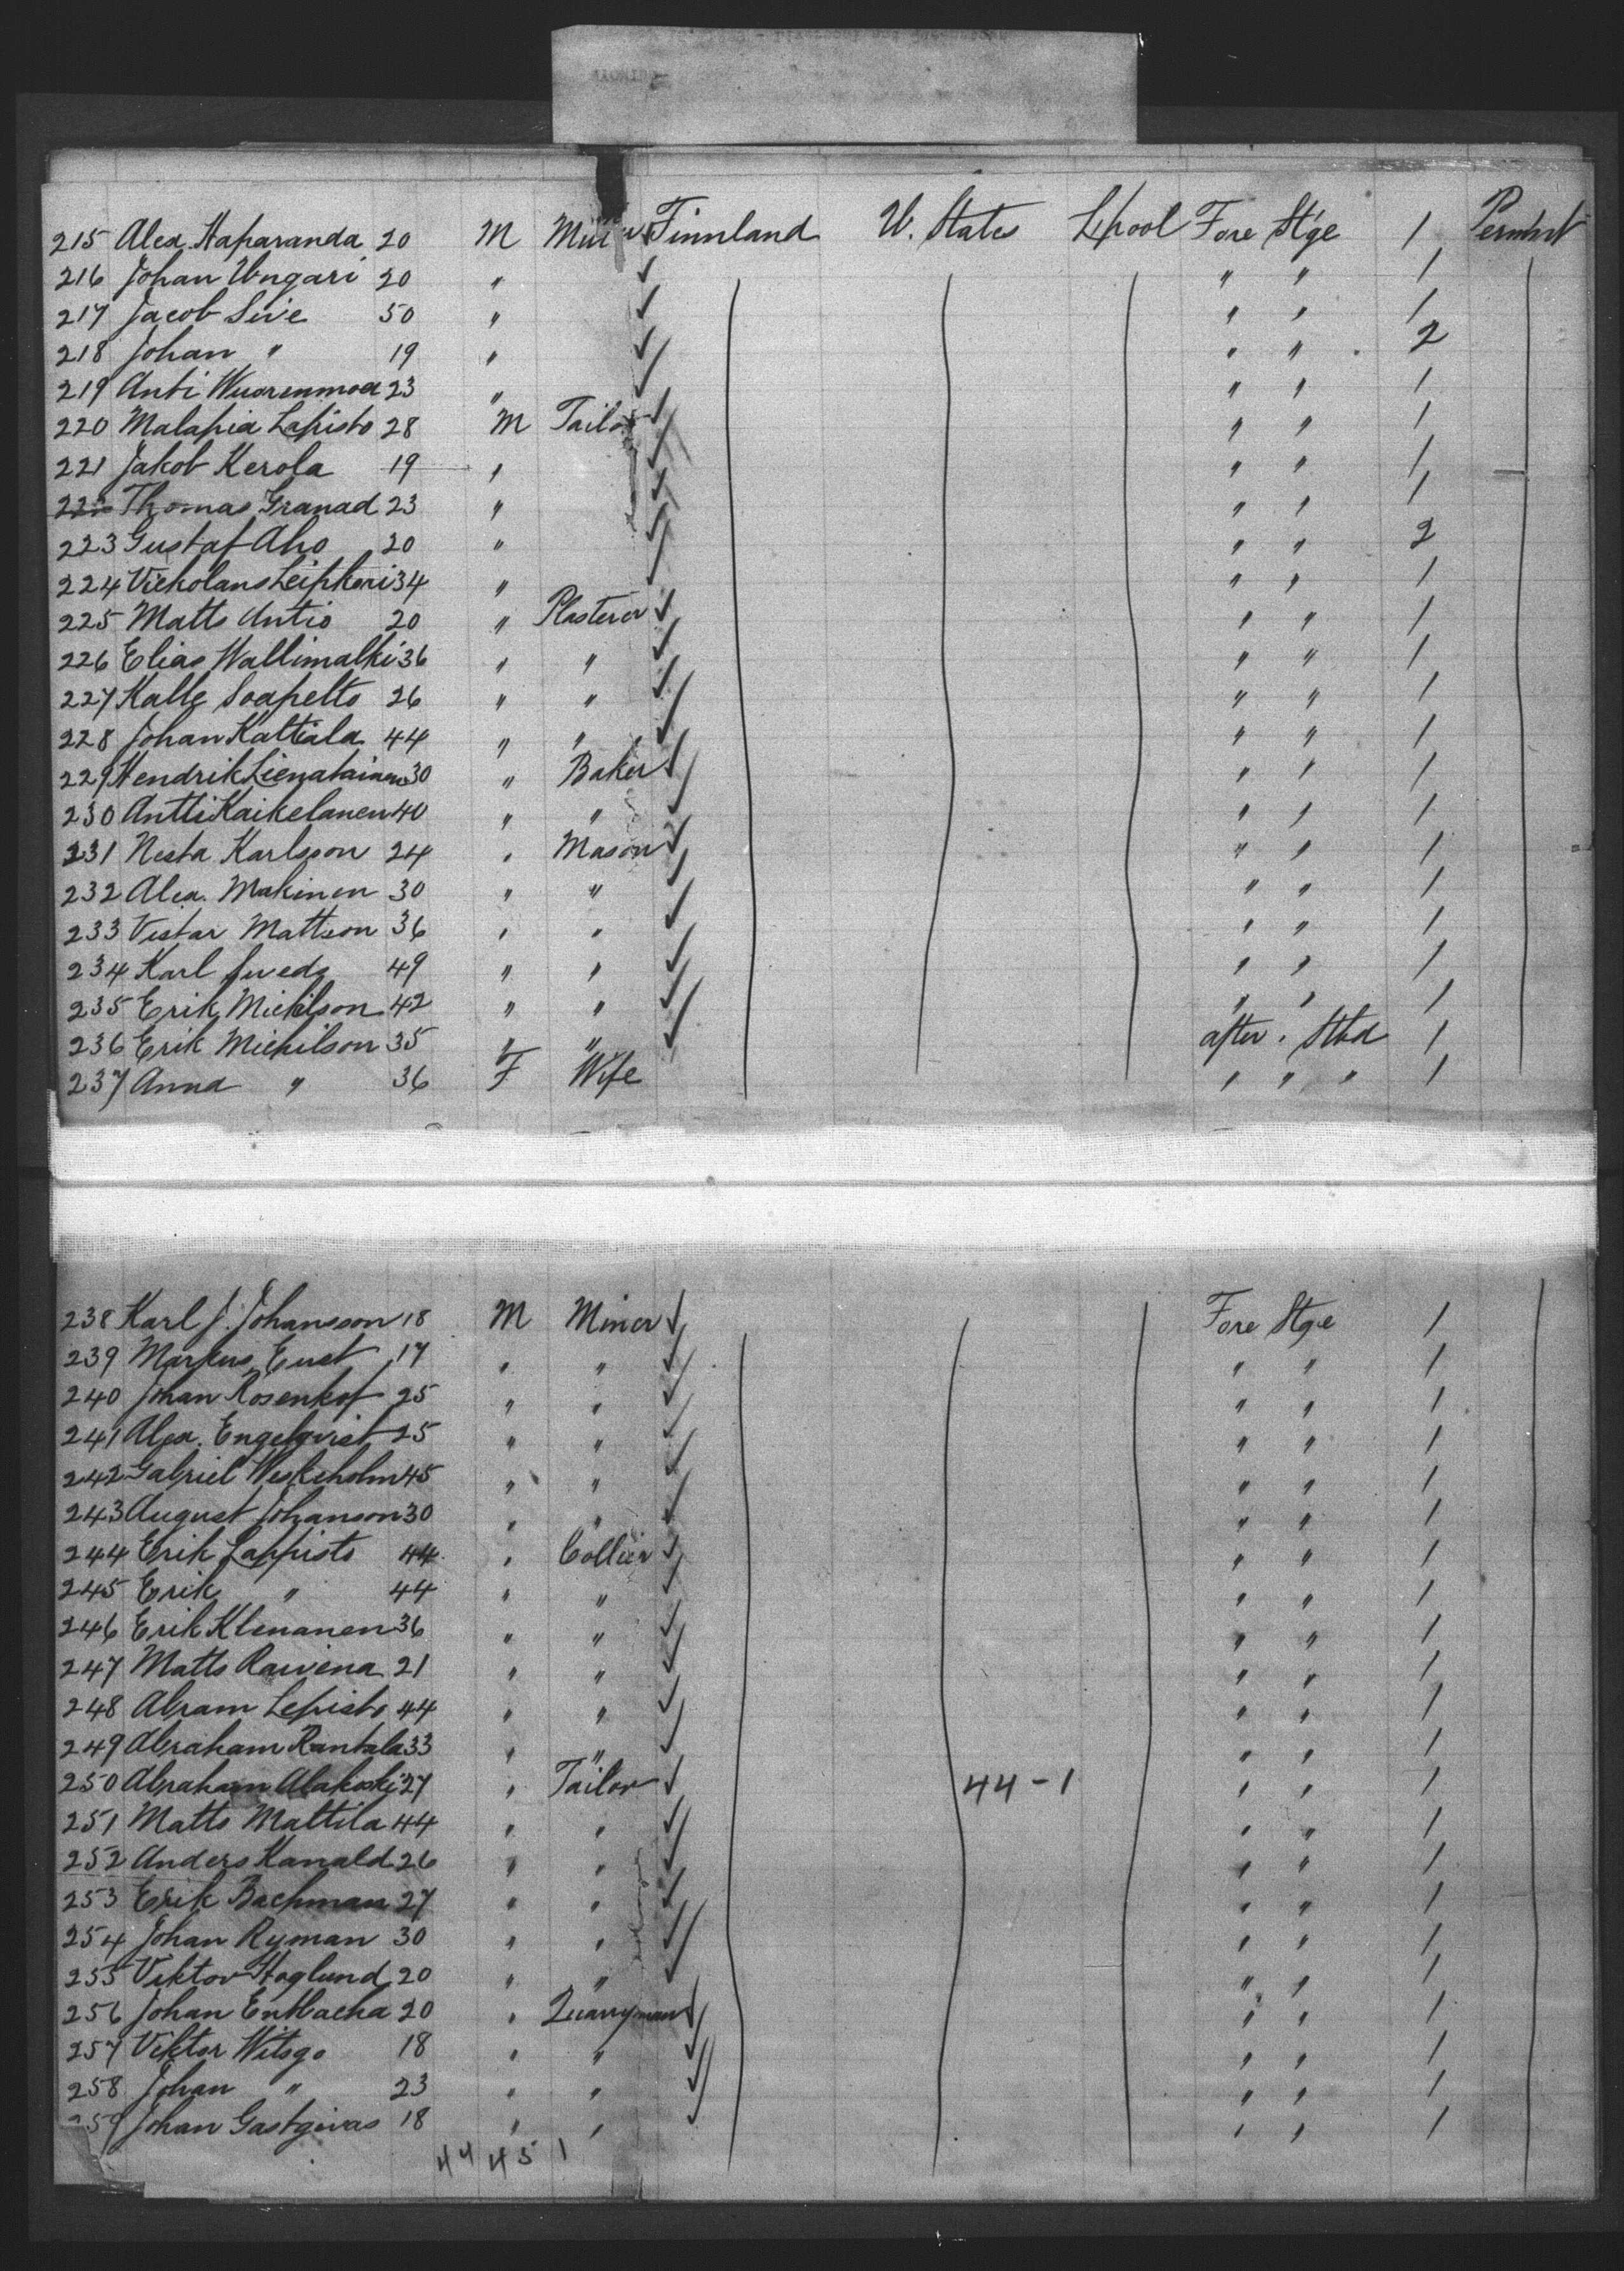 215 Alex. Haparanda 20 M Miner Finnland U. States Lpool Fore Stge 1 Permnt
216 Johan Ungari 20 " " " 1
217 Jacob Sive 50 " " " 1
218 Johan " 19 " " " 2
219 Anti Wuorenmaa 23 " " " 1
220 Malapia Lapisto 28 M Tailor " " 1
221 Jakob Kerola 19 " " " 1
222 Thomas Granad 23 " " " 1
223 Gustaf Aho 20 " " " 2
224 Leipkeri 34 " " " 1
225 Matts Antio 20 " Plasterer " " 1
226 Elias Wallimalki 36 " " " " 1
227 Kalle Soapelto 26 " " " " 1
228 Johan Kattiala 44 " " " " 1
229 Hendrik 30 " Baker " " 1
230 Antti Kaikelanen 40 " " " " 1
231 Nesta Karlsson 24 " Mason " " 1
232 Alex. Makinen 30 " " " " 1
233 Vistar Mattson 36 " " " " 1
234 Karl 49 " " " " 1
235 Erik Mickilson 42 " " " " 1
236 Erik Mickilson 35 " " after . Stbd 1
237 Anna " 36 F Wife " " " 1
238 Karl J. Johansson 18 M Miner Fore Stge 1
239 Markus Eust 17 " " " " 1
240 Johan Rosenkof 25 " " " " 1
241 Alex. Engelqvist 25 " " " " 1
242 Gabriel Weskeholm 45 " " " " 1
243 August Johanson 30 " " " " 1
244 Erik Lappisto 44 " Collier " " 1
245 Erik " 44 " " " " 1
246 Erik Klemanen 36 " " " " 1
247 Matts Raivena 21 " " " " 1
248 Abram Lepisto 44 " " " " 1
249 Abraham Rantala 33 " " " " 1
250 Abraham Alakoski 27 " Tailor 44-1 " " 1
251 Matts Mattila 44 " " " " 1
252 Anders Kanald 26 " " " " 1
253 Erik Bachman 27 " " " " 1
254 Johan Ryman 30 " " " " 1
255 Viktor Haglund 20 " " " " 1
256 Johan Entbacka 20 " Quarryman " " 1
257 Viktor Witsgo 18 " " " " 1
258 Johan " 23 " " " " 1
259 Johan Gastgivas 18 " " " " 1
44 45 1